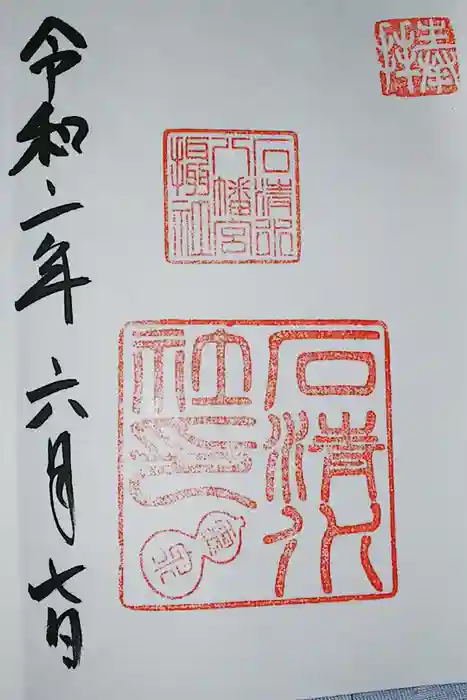 奉拝
石清水
八幡宮
攝社
石清水
社印
令和二年 六月七日